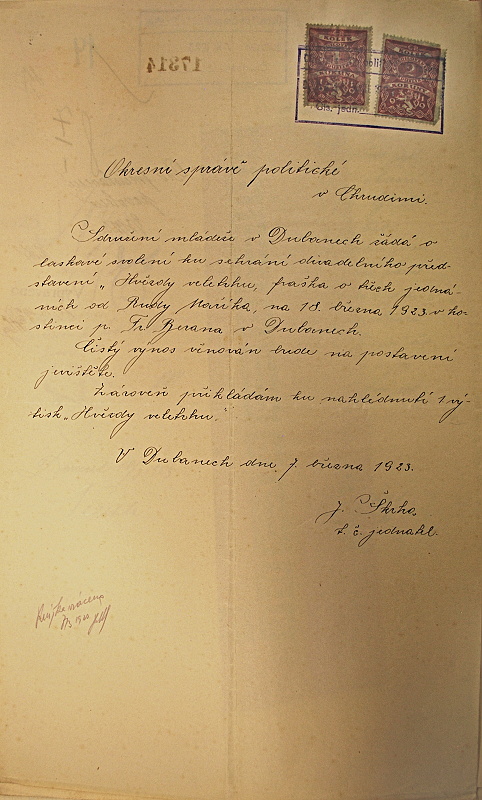 17814
KOLEK
KOLEK
KORUNA
KORUNY
čís. jedn.
Okresní správě politické
v Chrudimi.
Sdružení mládeže v Dubanech žádá o
laskavé svolení ku sehrání divadelního před-
stavení „Hvězdy veletrhu, fraška o třech jedná-
ních od Rudy Maříka, na 18. března 1923 v ho-
stinci p. Fr. Berana v Dubanech.
Čistý výnos věnován bude na postavení
jevištěte.
Zároveň přikládám ku nahlédnutí 1 vý-
tisk „Hvězdy veletrhu."
V Dubanech dne 7. března 1923.
J. Škrha
t. č. jednatel.